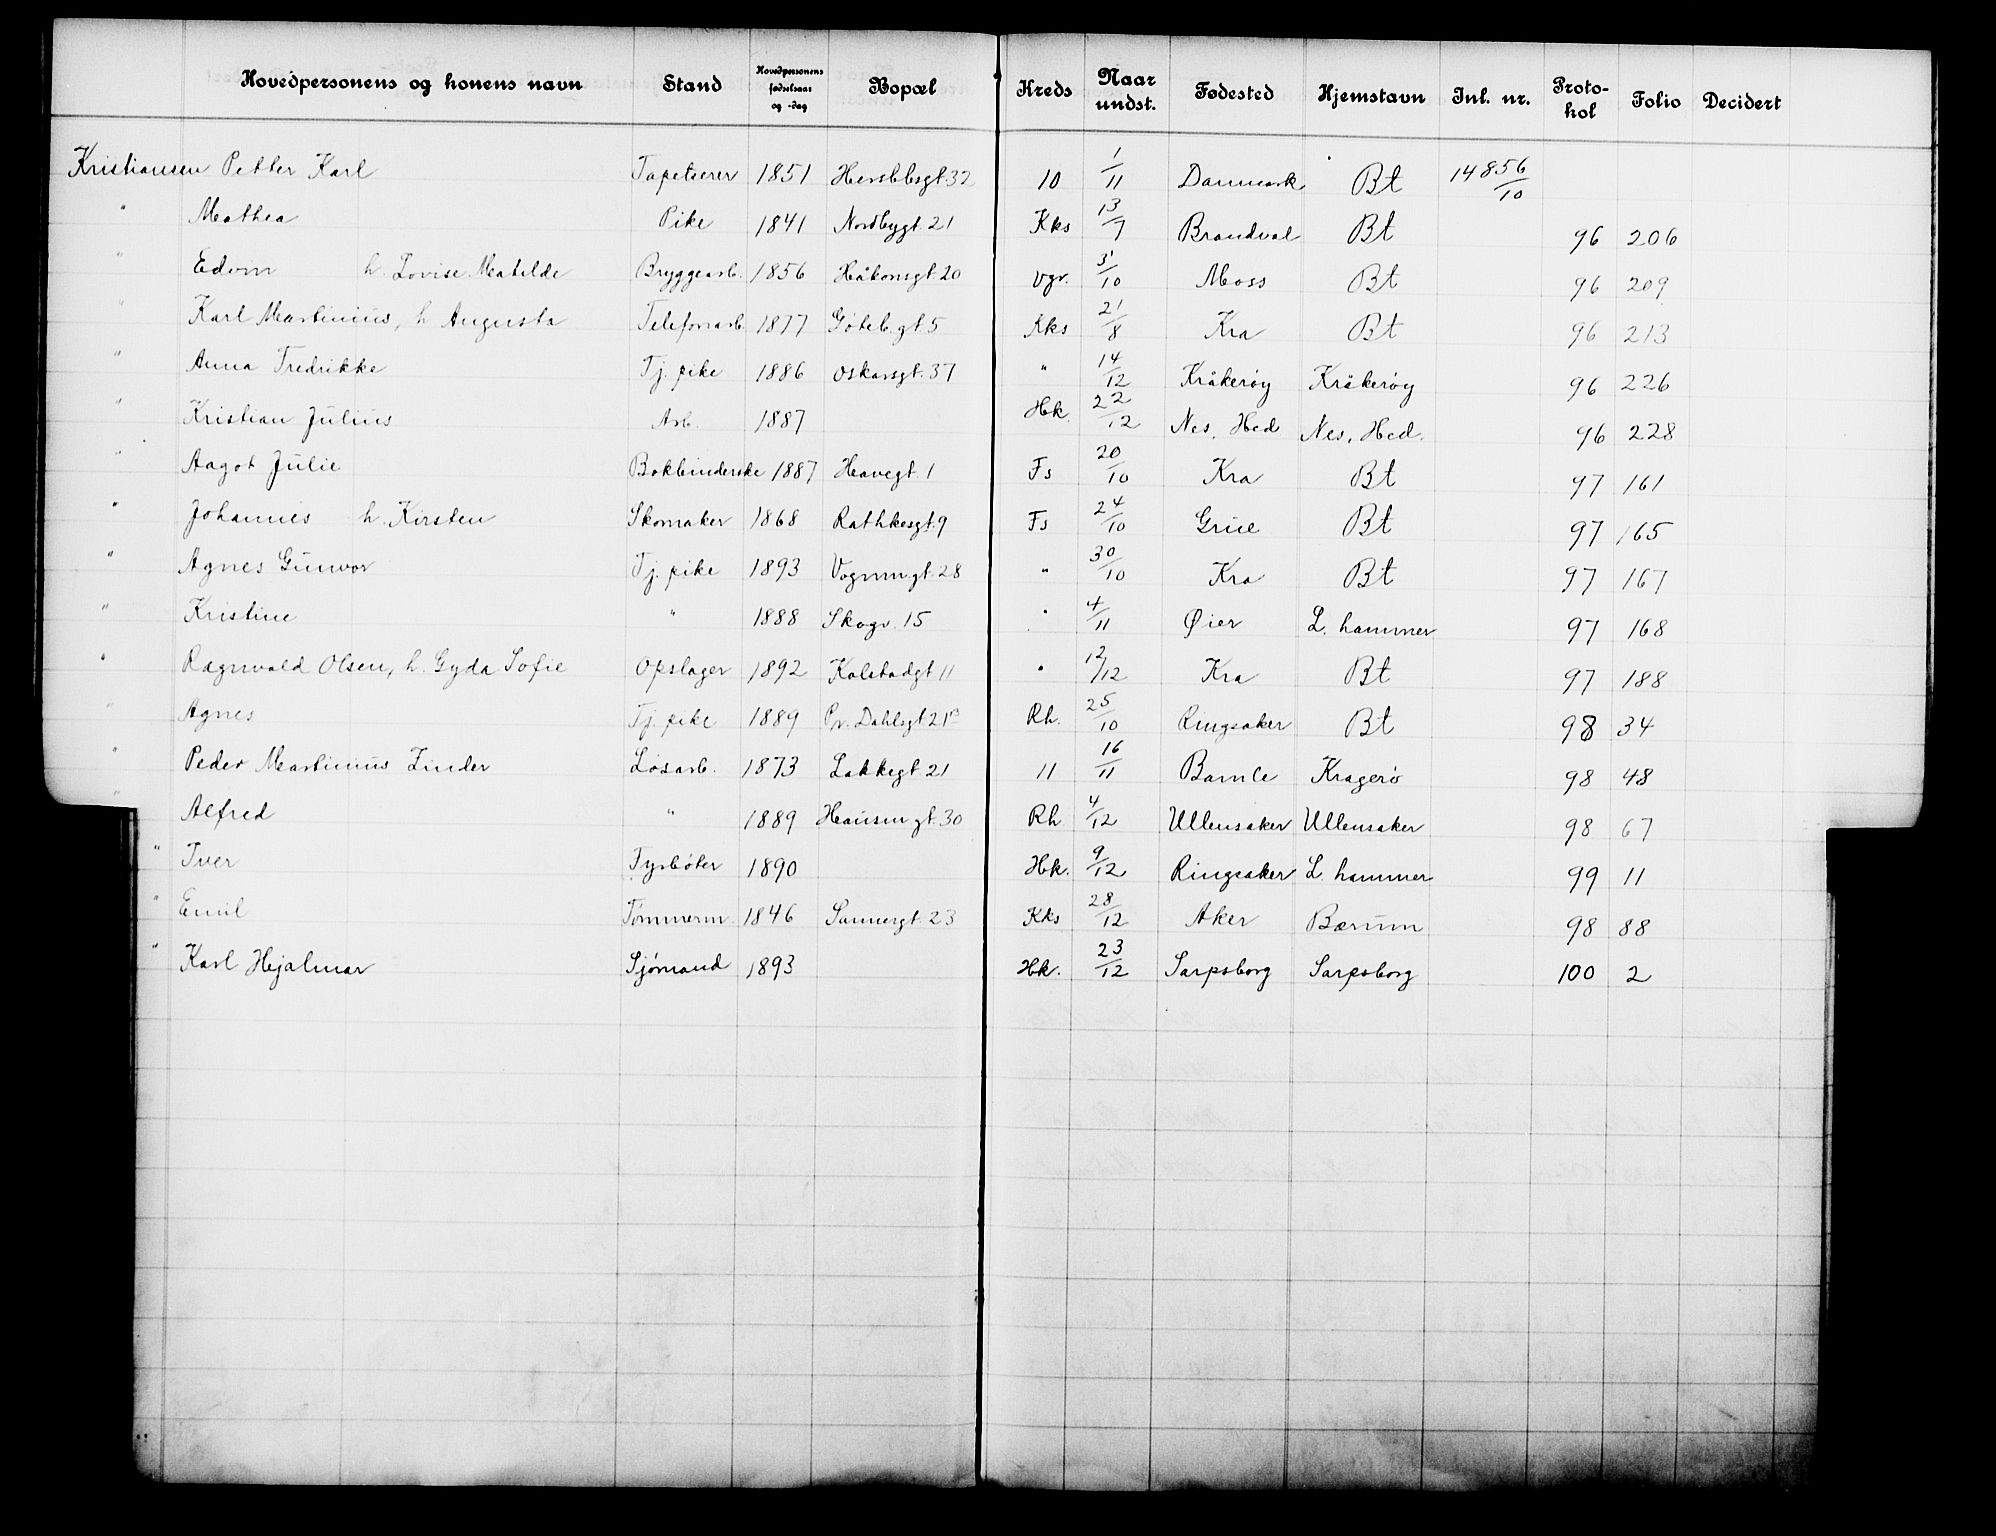 Hovedpersonens og konens navn Stand Hovedpersonens fødselsaar og -dag Bopæl Kreds Naar undst. Fødested Hjemstavn Inl. nr. Proto-kol Folio Decidert
Kristiansen Petter Karl Tapetserer 1851 Herslebsgt 32 10 1/11 Danmark Bt 14856/10
" Mathea Pike 1841 Nordbygt. 21 Kks 13/7 Brandval Bt 96 206
" Edvin h. Lovise Matilde Bryggearb. 1856 Håkonsgt. 20 Vgr. 3/10 Moss Bt 96 209
" Karl Martinius, h Augusta Telefonarb. 1877 Gøteb.gt. 5 Kks 21/8 Kra Bt 96 213
" Anna Fredrikke Tj. pike 1886 Oskarsgt. 37 " 14/12 Kråkerøy Kråkerøy 96 226
" Kristian Julius Arb. 1887 Hk. 22/12 Nes, Hed Nes, Hed. 96 228
" Aagot Julie Bokbinderske 1887 Havegt. 1 Fs 20/10 Kra Bt 97 161
" Johannes h. Kirsten Skomaker 1868 Rathkesgt. 9 Fs 24/10 Grue Bt 97 165
" Agnes Gunvor Tj. pike 1893 Vognmgt. 28 " 30/10 Kra Bt 97 167
" Kristine " 1888 Skogv. 15 " 4/11 Øier L. hammer 97 168
" Ragnvald Olsen, h. Gyda Sofie Opslager 1892 Kolstadgt 11 " 12/12 Kra Bt 97 188
" Agnes Tj. pike 1889 Pr. Dahlsgt 21B Rh. 25/10 Ringsaker Bt 98 34
" Peder Martinius Linder Løsarb. 1873 Lakkegt. 21 11 16/11 Bamle Kragerø 98 48
" Alfred " 1889 Hausm gt. 30 Rh 4/12 Ullensaker Ullensaker 98 67
" Iver Fyrbøter 1890 Hk. 9/12 Ringsaker L. hammer 99 11
" Emil Tømmerm. 1846 Sannergt. 23 Kks 28/12 Aker Bærum 98 88
" Karl Hjalmar Sjømand 1893 Hk. 23/12 Sarpsborg Sarpsborg 100 2